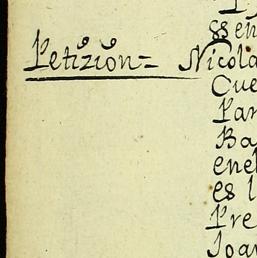 P
señ
Petizion= Nicola
Cue
Par
Ba
enel
es l
Pre
Joan